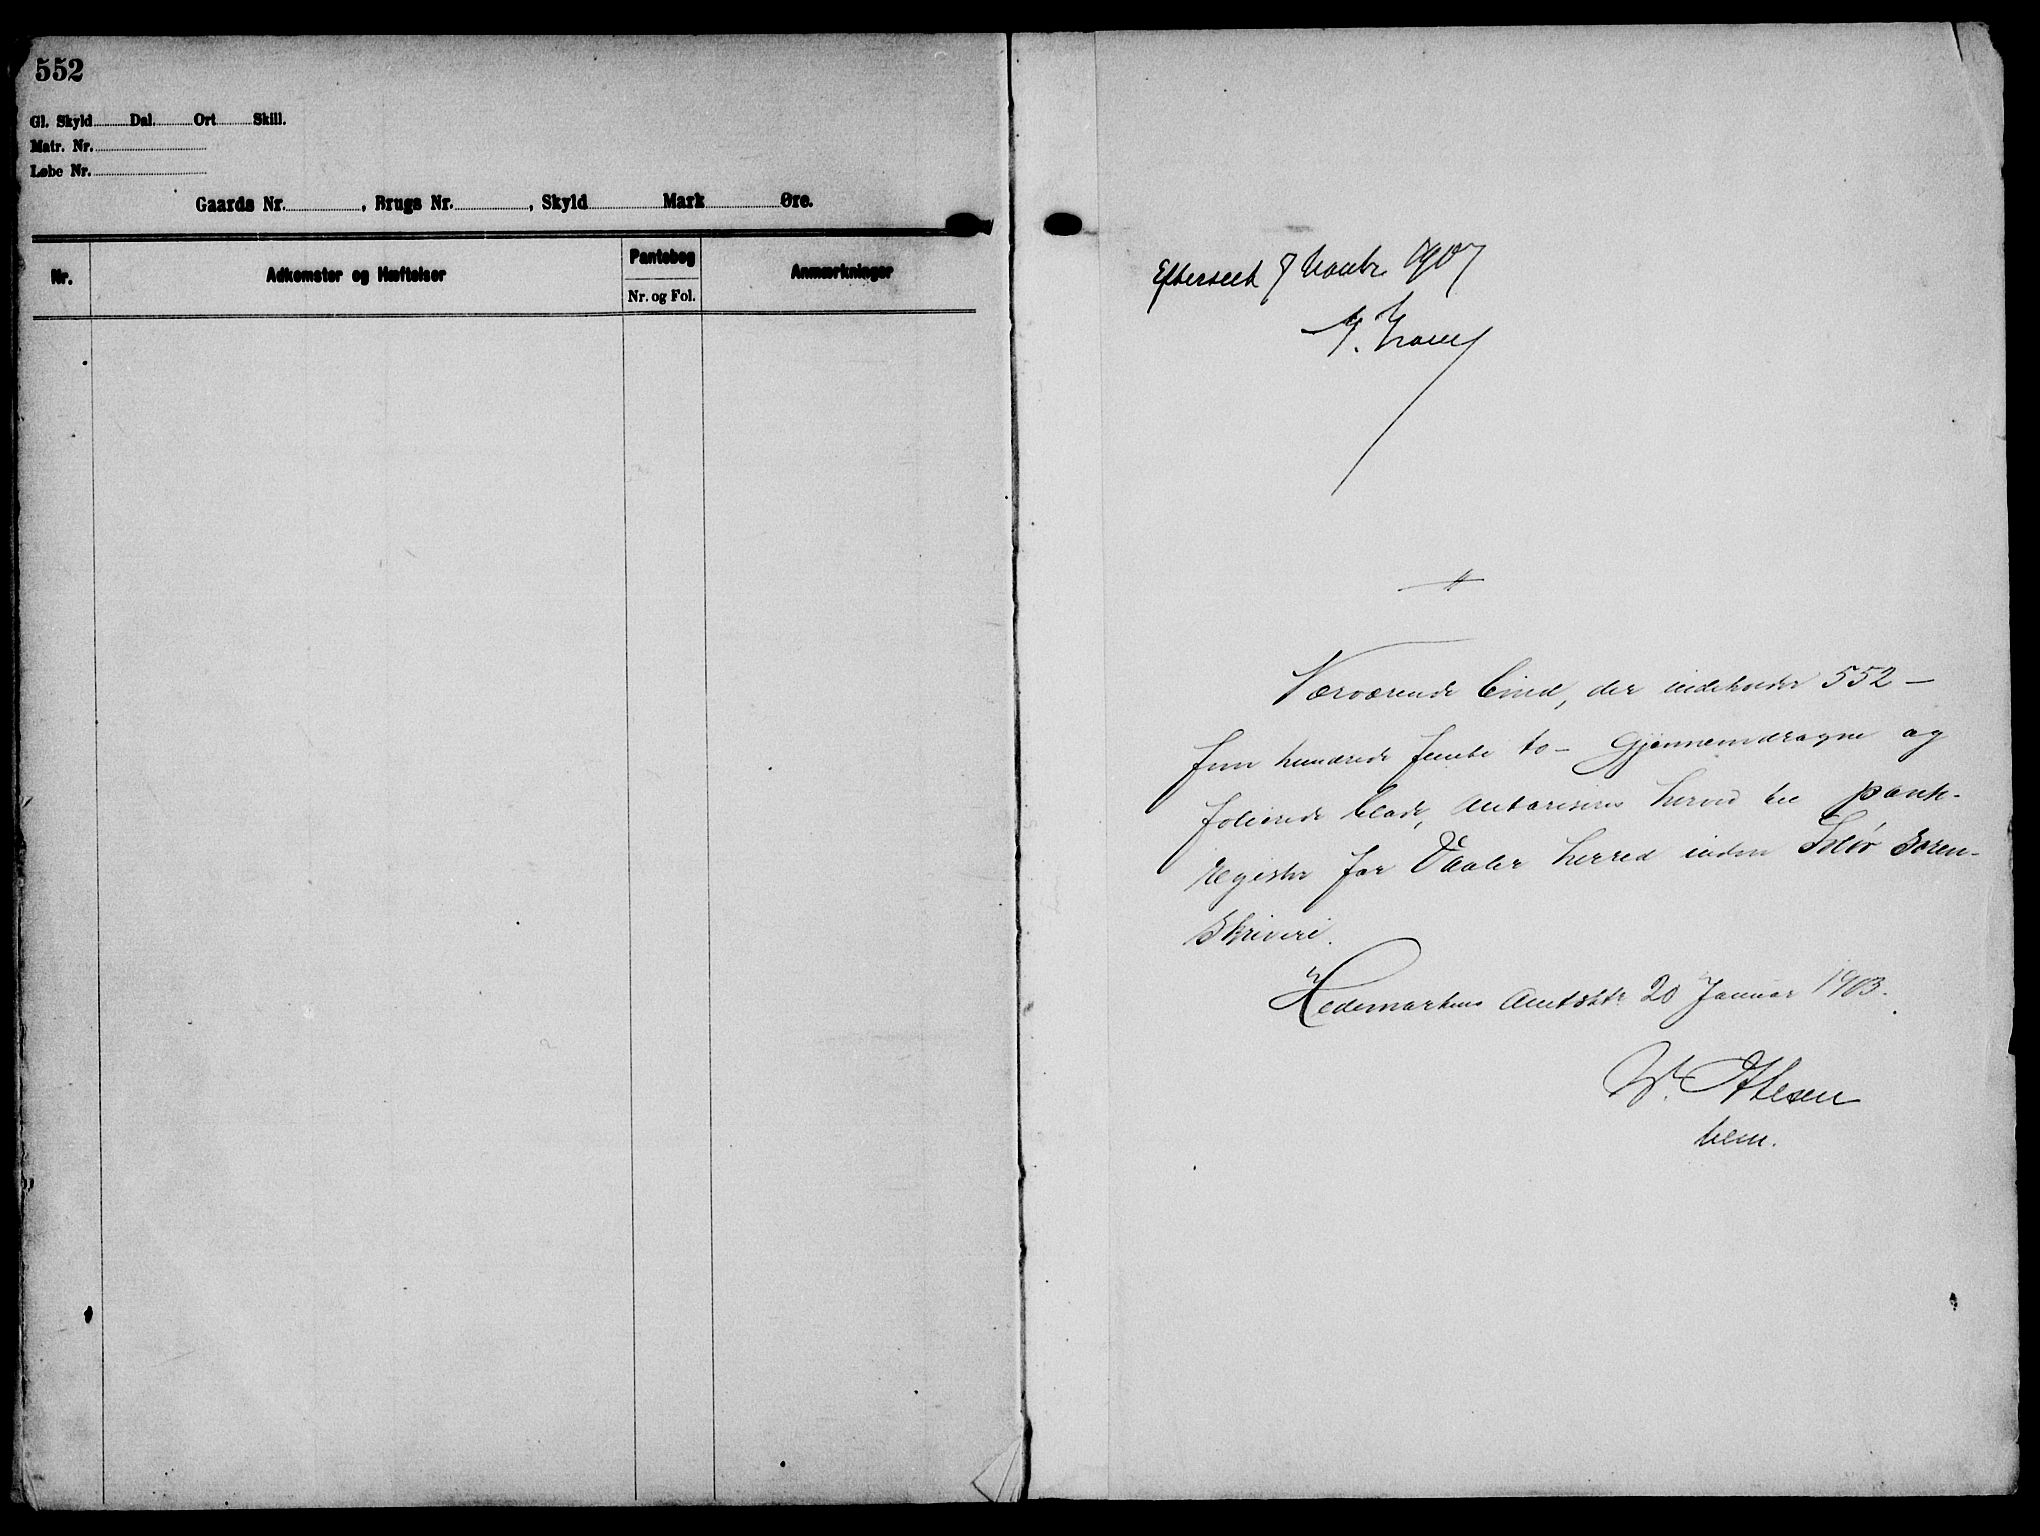 552
Gl. Skyld Dal. Ort Skill.
Matr. Nr.
Løbe Nr.
Gaards Nr. , Brugs Nr. , Skyld Mark Øre.
Nr.
Adkomster og Hæftelser
Pantebog
Nr. og Fol.
Anmærkninger
Efterseet 7 1907
Nærværende bind, der indeholder 552 –
fem hundrede femti to – Gjennemdragne og
folierede blade, autoriseres herved til pant-
register for Vaaler herred inden Solør Soren-
skriveri.
Hedemarkens Amtskt. 20 Januar 1903.